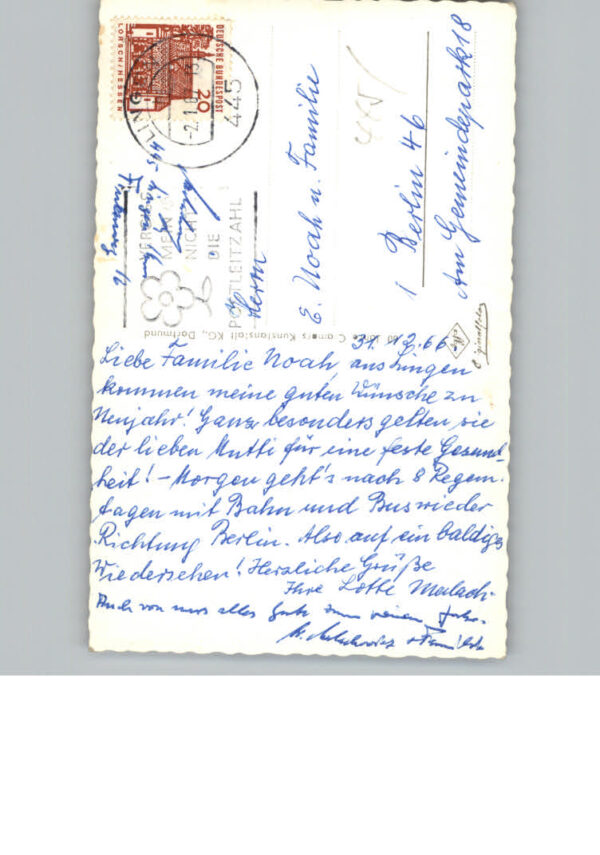 31.12.66
Liebe Familie Noah, aus Lingen
kommen meine guten Wünsche zu
Neujahr! Ganz besonders gelten sie
der lieben Mutti für eine feste Gesund-
heit! – Morgen geht's nach 8 Regen-
tagen mit Bahn und Bus wieder
Richtung Berlin. Also auf ein baldiges
Wiedersehen! Herzliche Grüße
Ihre Lotte
Auch von uns alles Gute zum neuen Jahr.
DEUTSCHE BUNDESPOST
20
LORSCH/HESSEN
LINGEN
445
VERGISS
MEIN
NICHT
DIE
POSTLEITZAHL
Herrn
E. Noah u. Familie
1 Berlin 46
Am Gemeindepark 18
Kunstanstalt KG., Dortmund